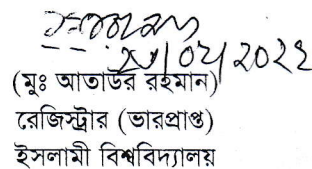 (মুঃ আতাউর রহমান)
রেজিস্ট্রার (ভারপ্রাপ্ত)
ইসলামী বিশ্ববিদ্যালয়